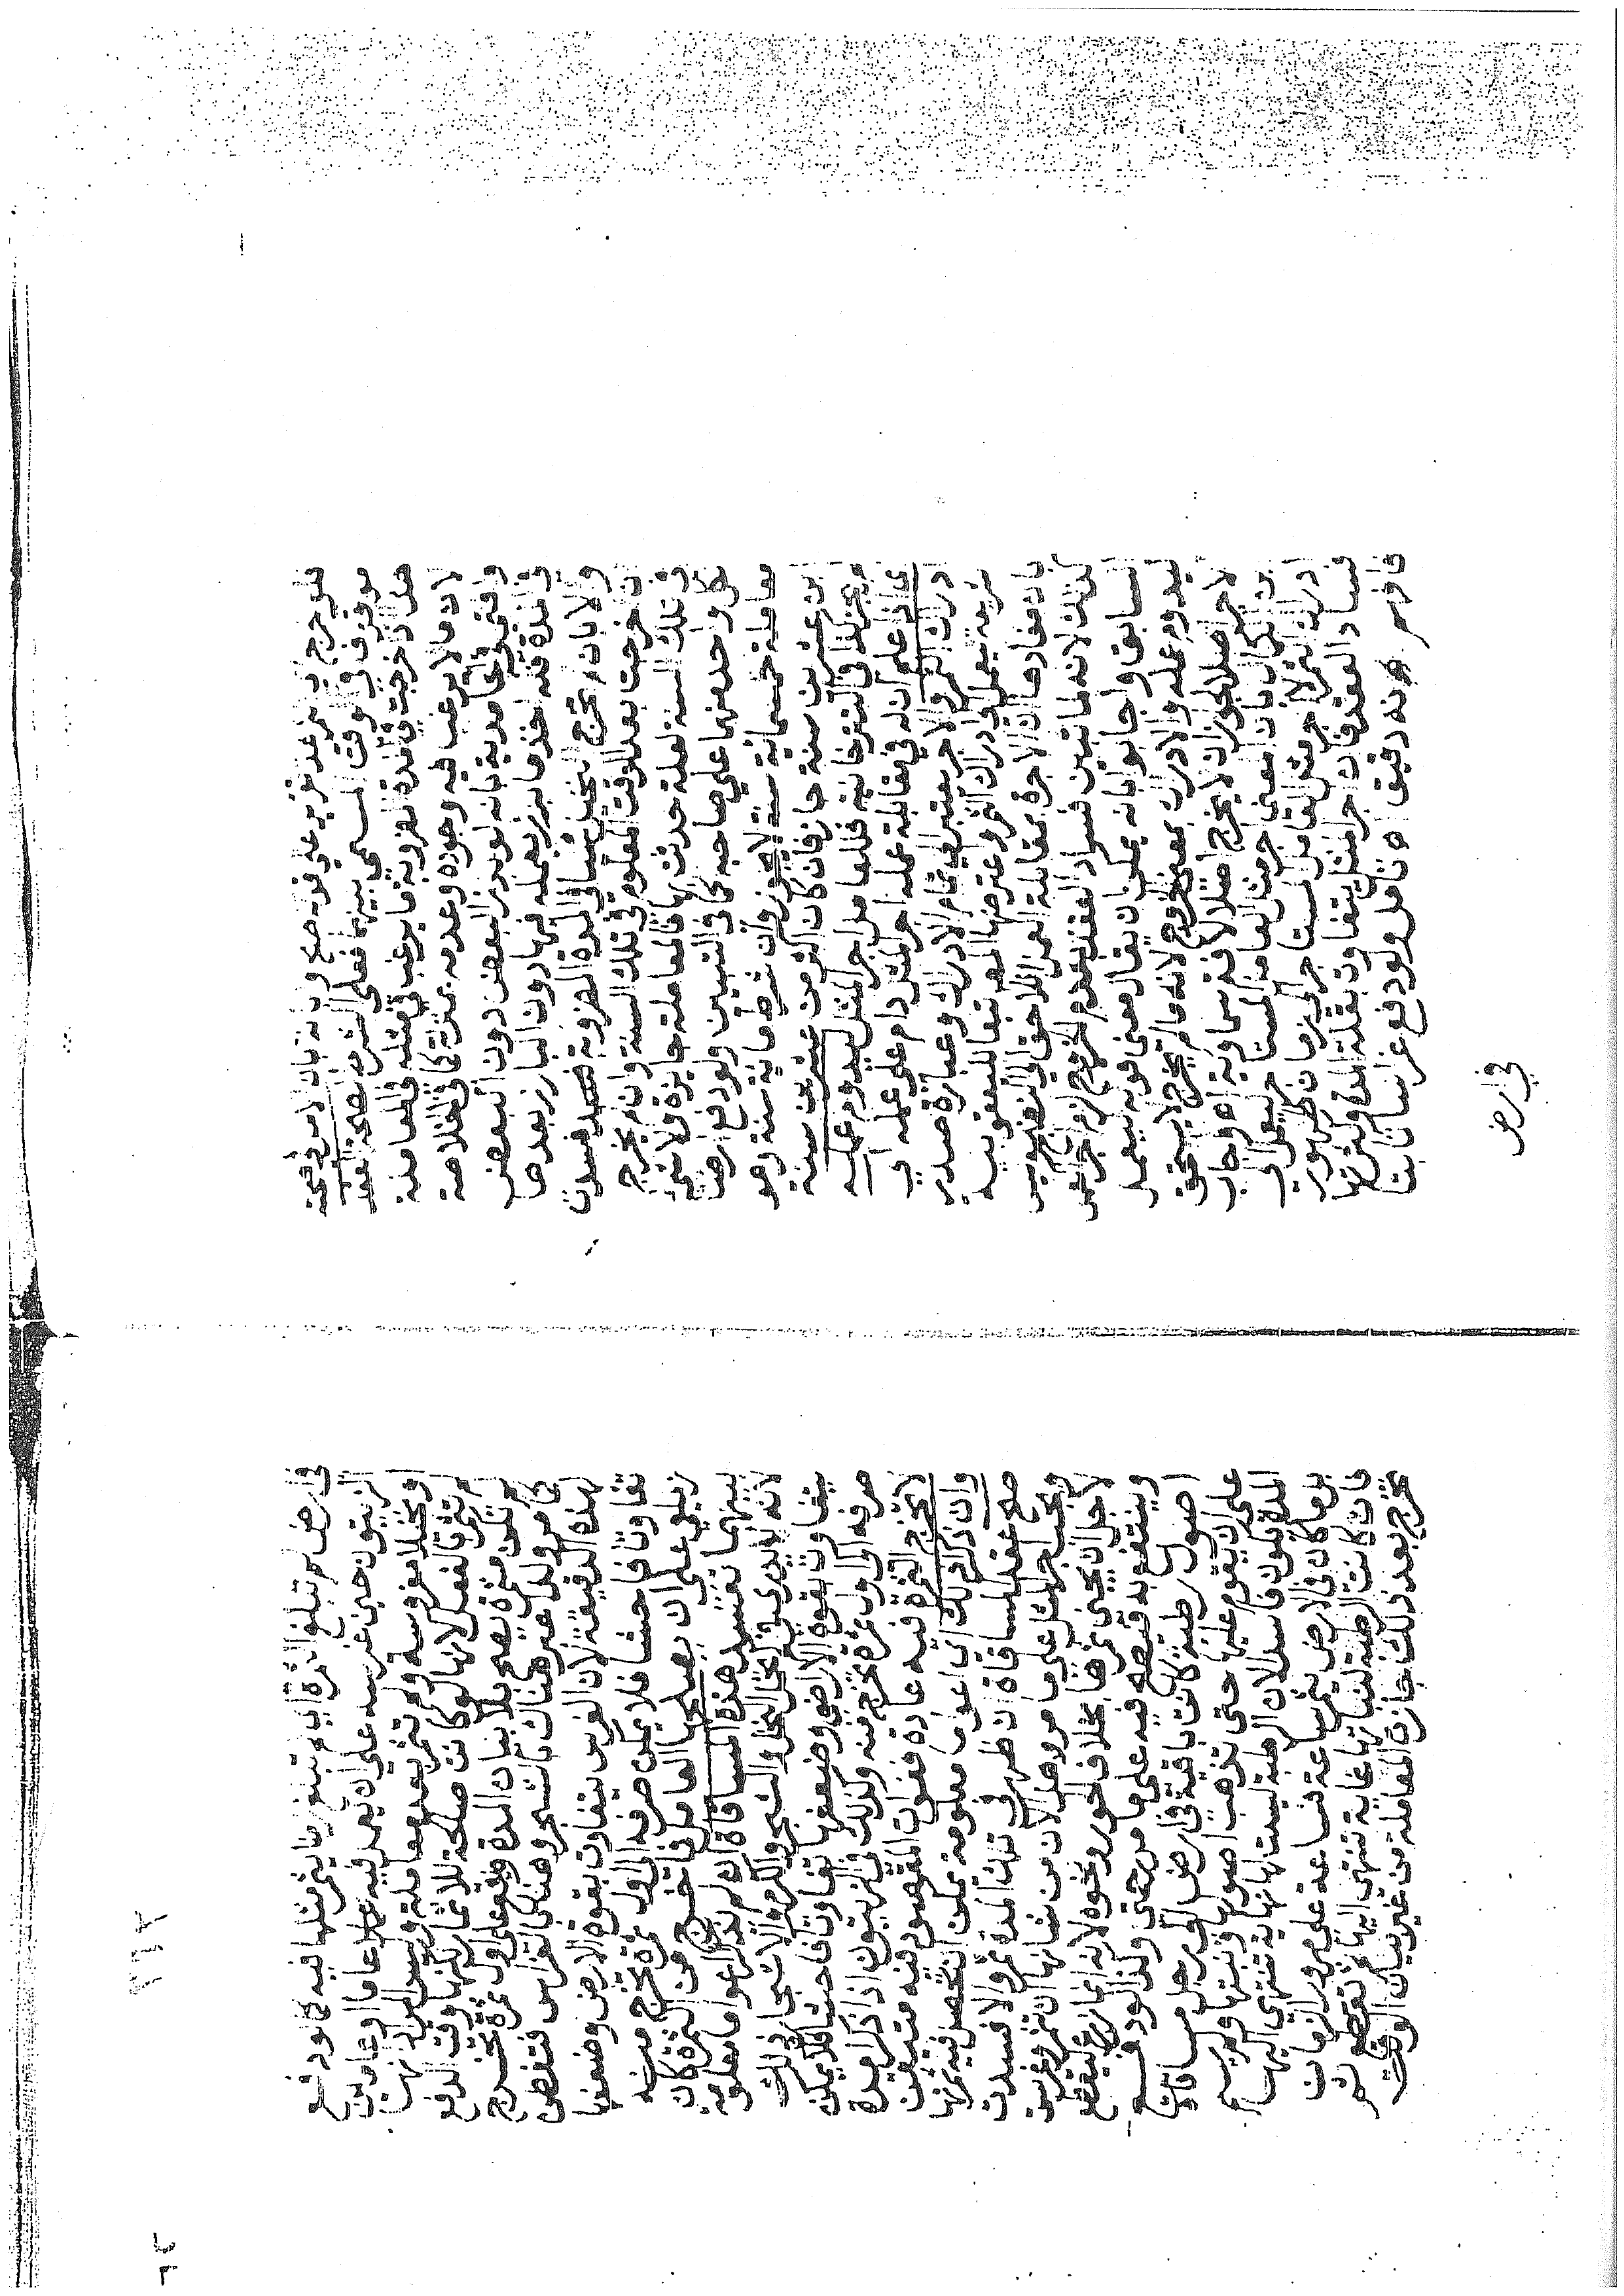 فلو خرج تفريع على قوله صح وبانه بان الامر في صحة
موقوف في الوقت المسمى بينهما فعلى الشرط لصحة العقد
هذا اذا خرجت في المدة المضروبة ما يرغب في مثله في المعاملة
لان ما لا يرغب فيه وجوده وعدمه بمنزلة كما في الخلاصة
وافتى في الحامدية بانه لو برز البعض دون البعض
في المدة فله اخذ ما برز بعمله فيها دون البارز بعدها
والا بان لم تخرج النخل شيا في المدة المضروبة فسدت
بان خرجت بعد الوقت المعلوم في تلك السنة وان لم يخرج
في تلك السنة لعلة حدثت بها فالمعاملة جايزة ولا شي
لكل واحد منهما على صاحبه كما في التبيين ولو دفع ارضا
معاملة خمسمائة سنة لا يجوز وان شرطا مائة سنة وهو
ابن عشرين سنة جاز فان كان اكثر من عشرين سنة
لم يجز كذا في التترخانية فللعامل اجر المثل ليدوم عمله
هذا علم ان له في مقابلة عمله اجر المثل دام على عمله الى
ادراك الثمر والاجر معتبر الى تمام الادراك وعبارة صدر
الشريعة ليعمل الى ادراك الثمر اعترضها المص تبعا لليعقوبيه
بان مفادها ان الاجرة بمقابلة العمل اللاحق الى
كذلك لانه لما تبين فساد العقد بعدم الخروج لزم اجر المثل
لسابقا واجابوا بانه يمكن ان يقال معنى قوله ليعمل
ليدوم عمله والادراك بمعنى الخروج لانه مالم يخرج لا يستحق
لاجر اصلا لجواز ان لا يخرج اصلا لافة سماوية اه واجاب
بن الكمال بان المعنى اجر مثل العامل المستاجر ليعمل الى
ادراك الثمر لا اجر مثل العامل المستاجر الى زمان ظهور
فساد العقد فان اجر المثل يتفاوت بقلة المدة وكثرتها
فافهم فانه دقيق اه تامل ولو دفع غراسا نابتا
في ارض
في ارض لم تبلغ الثمرة اي لم تبلغ زمنا يثمر مثلها فيه كما لو دفع
الزيتون حين غرسه على ان يعمل فيه عاما او عامين
او نخلا مغروسة ولم تثمر بعد معاملة
لم تثمر بالفعل لانها لو كانت صالحة للاثمار لكنها وقت الدفع
لم تكن مثمرة يصح بلا بيان المدة ويقع على اول ثمرة تخرج
كما مر ولذا عبر هناك بالشجر وهنا بالغراس فتفطن
لهذه الدقيقة لان الغرس يتفاوت بقوة الارض وضعفها
تفاوتا فاحشا فلا يمكن صرفه الى اول ثمرة تخرج منه
زيلعي على ان يصلحها العامل فما خرج من الثمرة كان
بينهما تفسد هذه المساقاة ان لم يذكر اعواما معلومة
لانه لا يدري متى تحمل النخل والشجر والكرم والاشجار لذلك
يتفاوت بقوة الاراضي وضعفها تفاوتا فاحشا فلا يمكن
صرفه الى اول ثمرة تخرج منه وكذلك في الزيتون اذا ذكر مدة
لا تخرج الثمرة فيه عادة ففوات المقصود فيه متيقن
وان ذكر ذلك اي اعواما معلومة يمكن ان تحصل فيه ثمرتها
صح عقد المساقاة ان ظهر في تلك المدة ثمر والا فسدت
ويجب اجر المثل على ما مر وهذا لان من شانها ان تثمر وغرس
لاجل ان يجنى ثمرها بخلاف الحور ونحوه لانه انما زرع ليقطع
وينتفع به قيصح فيه على ما مر حتى ولذا لو دفع
اصول رطبة كانت باقية في ارض الى رجل مساقاة
على ان يقوم عليها حتى تذهب اصولها ونبتها ولم يسم
المدة تكون فاسدة لان الرطبة ليست لها نهاية تنتهي اليها
بل ما كان في الارض ينمو ساعة فساعة على مرور الزمان
فان كانت الرطبة لنباتها غاية تنتهي اليها ثم تقطع ثم
تخرج بعد ذلك جازت المعاملة من غير بيان الوقت